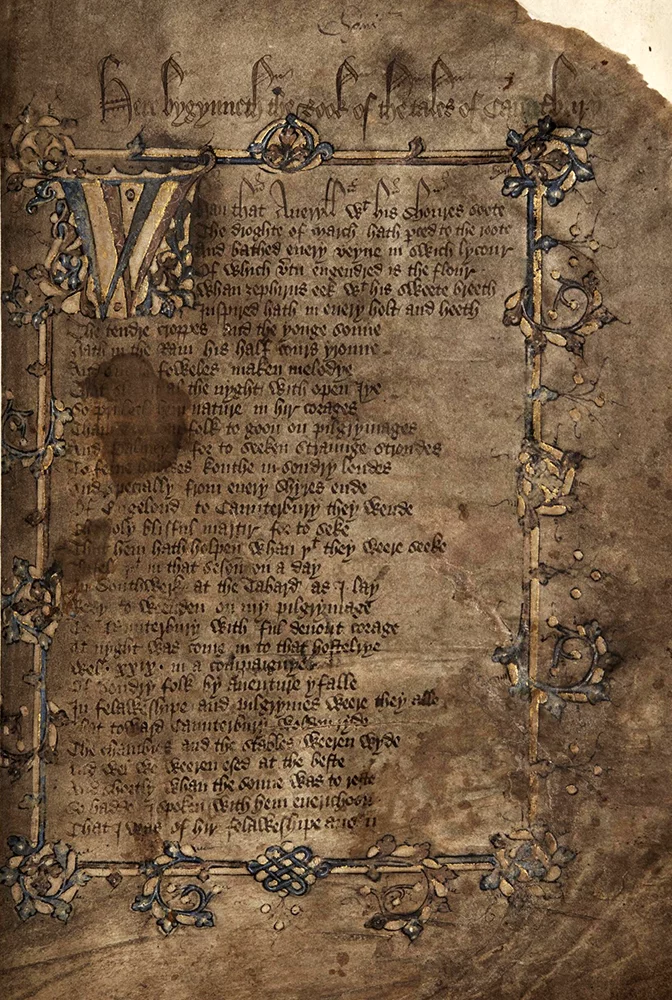 Here bygynneth the Book of the tales of Caunterbury
Whan that Aueryll wt his shoures soote
The droghte of march hath perced to the roote
And bathed euery veyne in swich lycour
Of which vertu engendred is the flour
Whan zephirus eek wt his sweete breeth
Inspired hath in euery holt and heeth
The tendre croppes and the yonge sonne
Hath in the Ram his half cours yronne
And foweles maken melodye
That al the nyght with open Iye
So priketh hem nature in hir corages
folk to goon on pilgrymages
And for to seeken straunge strondes
To ferne halwes kouthe in sondry londes
And specially from euery shyres ende
Of Engelond to Caunterbury they wende
The holy blisful martir for to seke
That hem hath holpen whan yt they weere seeke
Bifel yt in that seson on a day
In Southwerk at the Tabard as I lay
Redy to weenden on my pilgrymage
To Caunterbury with ful deuout corage
At nyght was come in to that hostelrye
Wel xxix in a compaignye
Of sondry folk by auenture yfalle
In felaweshipe and pilgrymes weere they alle
That toward Caunterbury wolden ryde
The chambres and the stables weeren wyde
And wel we weeren esed at the beste
And shortly whan the sonne was to reste
So hadde I spoken with hem euerichoon
That I was of hir felaweshipe anon